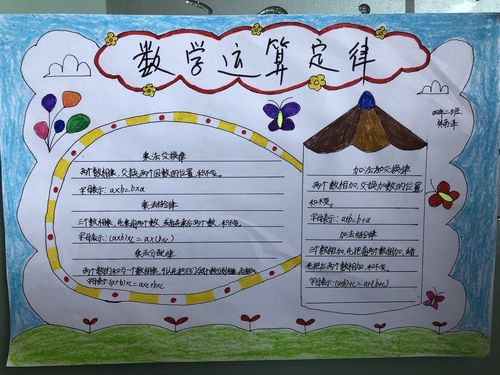 数学运算定律
乘法交换律
两个数相乘,交换两个因数的位置,积不变。
字母表示:a×b=b×a
乘法结合律
三个数相乘,先乘前两个数,或者先乘后两个数,积不变。
字母表示:(a×b)×c=a×(b×c)
乘法分配律
两个数的和与一个数相乘,可以先把它们与这个数分别相乘,再相加
字母表示:(a+b)×c=a×c+b×c
加法交换律
两个数相加,交换加数的位置
和不变。
字母表示:a+b=b+a
加法结合律
三个数相加,先把前两个数相加,或者
先把后两个数相加,和不变。
字母表示:(a+b)+c=a+(b+c)